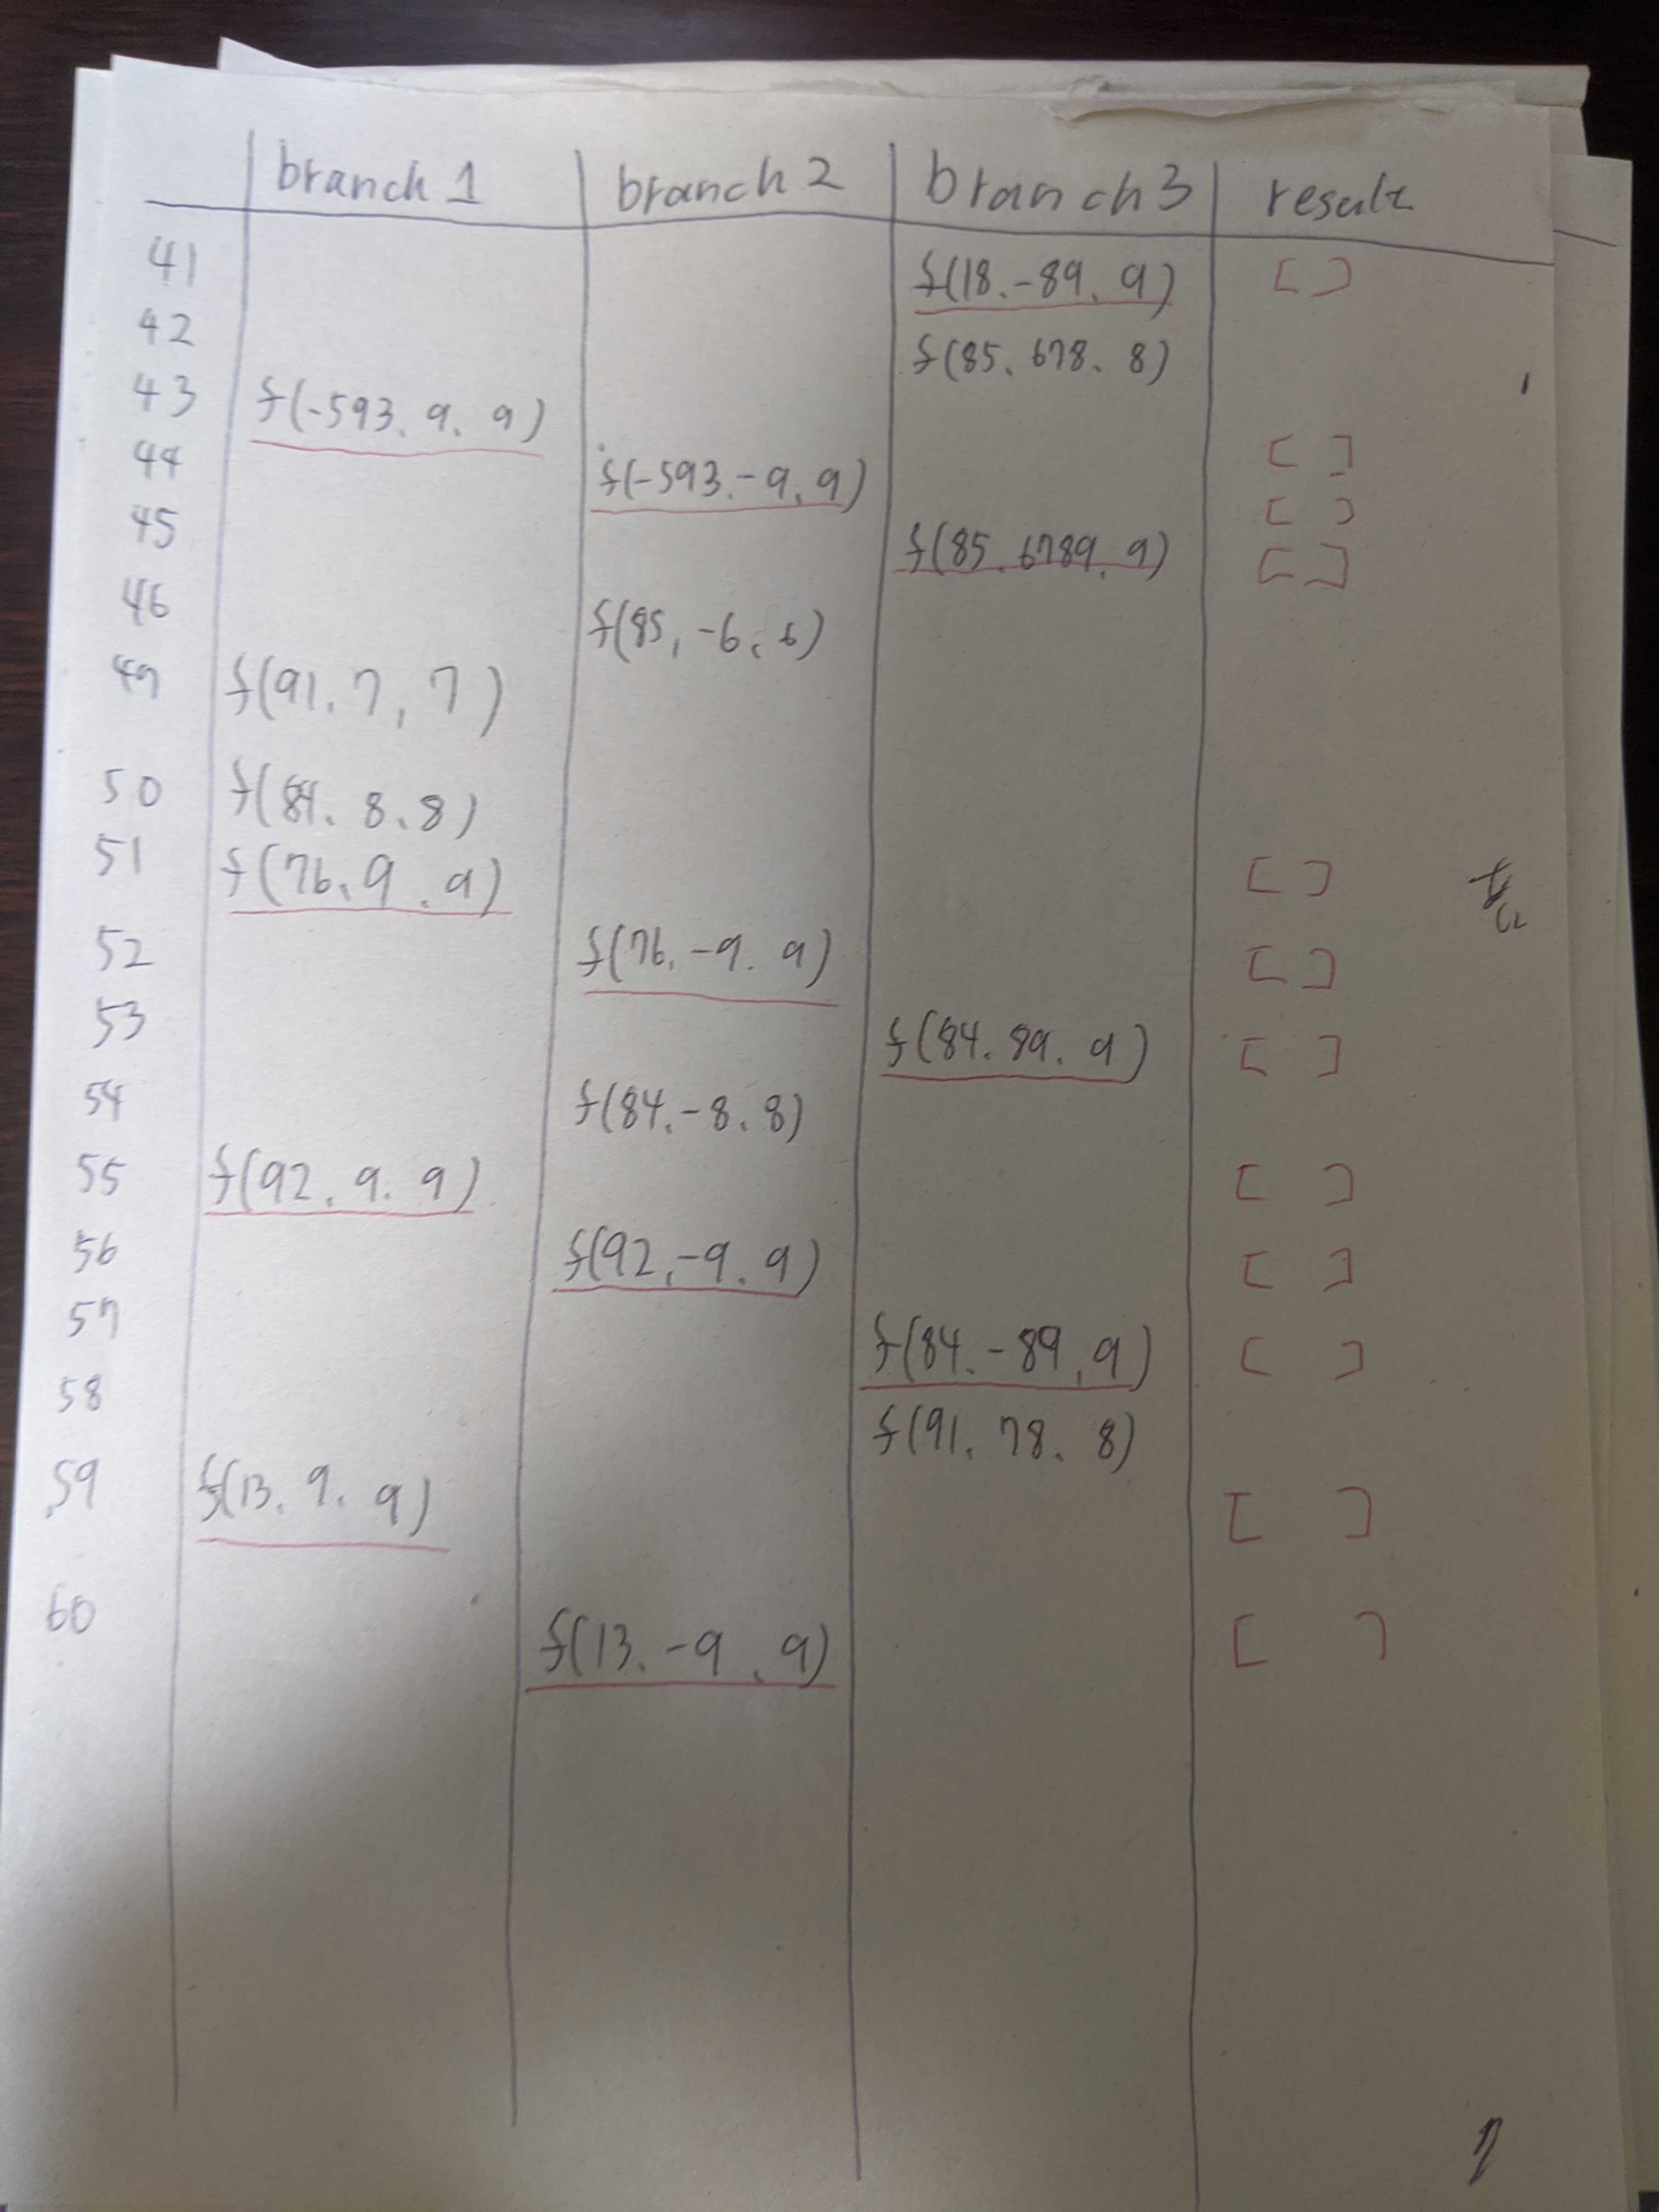 branch 1 branch 2 branch 3 result
41 f(18.-89.9) [ ]
42 f(85.678.8)
43 f(-593.9.9) [ ]
44 f(-593.-9.9) [ ]
45 f(85.6789.9) [ ]
46 f(85,-6.6)
49 f(91.7,7)
50 f(84.8.8)
51 f(76.9.9) [ ]
52 f(76.-9.9) [ ]
53 f(84.89.9) [ ]
54 f(84.-8.8)
55 f(92.9.9) [ ]
56 f(92,-9.9) [ ]
57 f(84.-89,9) [ ]
58 f(91.78.8)
59 f(13.9.9) [ ]
60 f(13.-9.9) [ ]